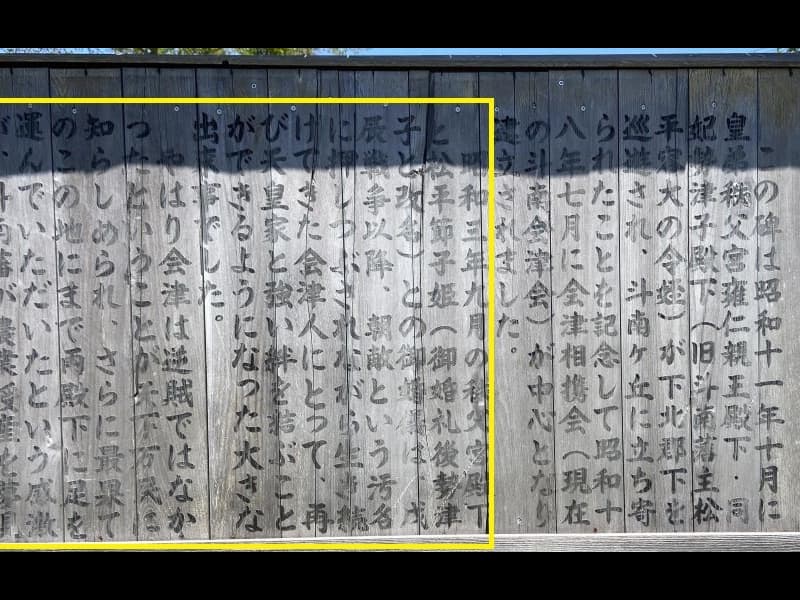 この碑は昭和十一年十月に
皇弟秩父宮雍仁親王殿下・同
妃勢津子殿下（旧斗南藩主松
平容大の令姪）が下北郡下を
巡遊され、斗南ケ丘に立ち寄
られたことを記念して昭和十
八年七月に会津相携会（現在
の斗南会津会）が中心となり
建立されました。
昭和三年九月の秩父宮殿下
と松平節子姫（御婚礼後勢津
子と改名）との御婚儀は、戊
辰戦争以降、朝敵という汚名
に押しつぶされながら生き続
けてきた会津人にとって、再
び天皇家と強い絆を結ぶこと
ができるようになった大きな
出来事でした。
やはり会津は逆賊ではなか
ったということが天下万民に
知らしめられ、さらに最果て
のこの地にまで両殿下に足を
運んでいただいたという感激
が、斗南藩が農業授産を夢見